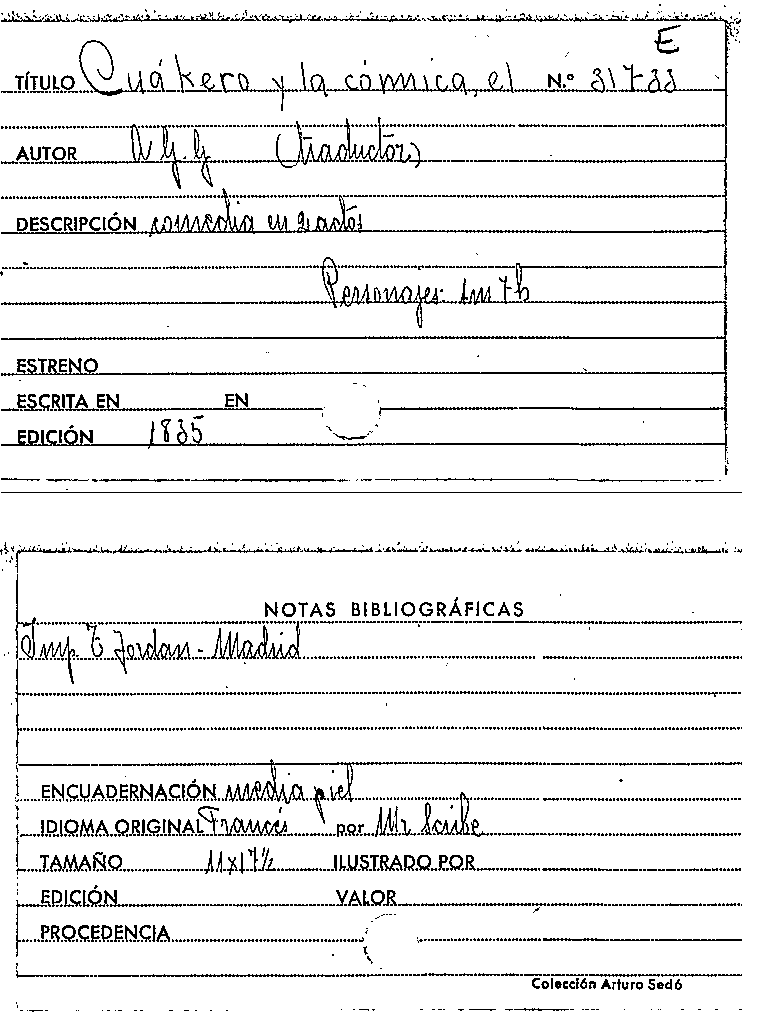 E
TÍTULO Cuákero y la cómica, el N.º 31733
AUTOR A G. G (traductor)
DESCRIPCIÓN comedia en 2 actos
Personajes: 1m 7h
ESTRENO
ESCRITA EN EN
EDICIÓN 1835
NOTAS BIBLIOGRÁFICAS
Imp. T Jordan - Madrid
ENCUADERNACIÓN media piel
IDIOMA ORIGINAL Francés por Mr Scribe
TAMAÑO 11x17½ ILUSTRADO POR
EDICIÓN VALOR
PROCEDENCIA
Colección Arturo Sedó